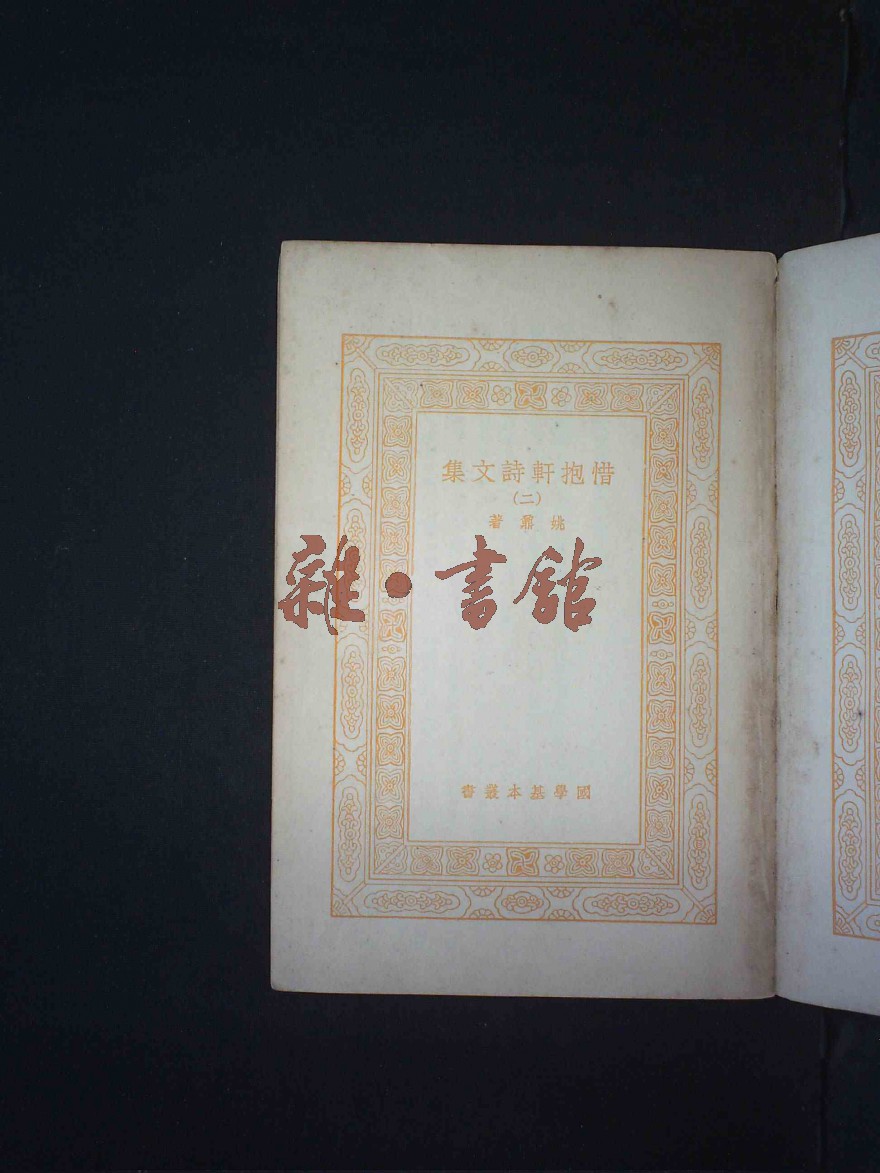 惜抱軒詩文集
(二)
姚鼐著
雜·書館
國學基本叢書